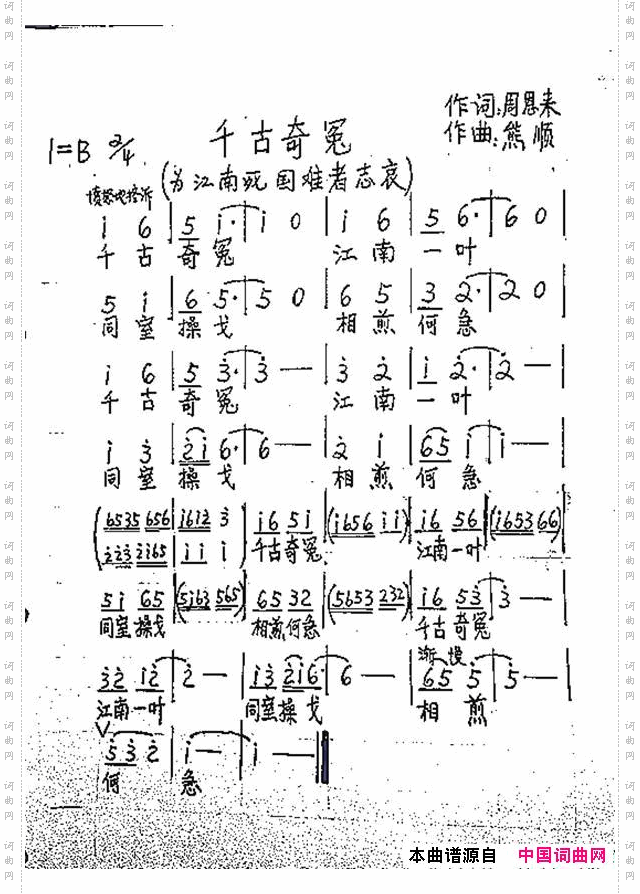 千古奇冤
作词:周恩来
作曲:熊顺
1=B 2/4
(为江南死国难者志哀)
愤怒地控诉
i 6 | 5 i· | i 0 | i 6 | 5 6· | 6 0 |
千 古 奇 冤 江 南 一 叶
5 i | 6 5· | 5 0 | 6 5 | 3 2· | 2 0 |
同 室 操 戈 相 煎 何 急
i 6 | 5 3· | 3 — | 3 2 | i 2· | 2 — |
千 古 奇 冤 江 南 一 叶
i 3 | 2i 6· | 6 — | 2 i | 65 i | i — |
同 室 操 戈 相 煎 何 急
(6535 656 | i612 3 | i6 5i | (i656 ii) | i6 56 | (i653 66) |
223 2165 | i i i)
千古奇冤 江南一叶
5i 65 | (5i63 565) | 65 32 | (5653 232) | i6 53 | 3 — |
同室操戈 相煎何急 千古奇冤
渐慢
32 i2 | 2 — | i3 2i6· | 6 — | 65 5 | 5 — |
江南一叶 同室操戈 相 煎
V
5 3 2 | i — | i — ‖
何 急
本曲谱源自 中国词曲网
词曲网